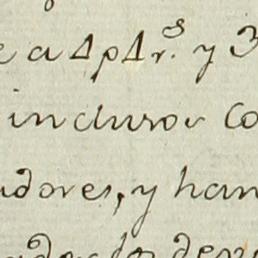 e a ΔpΔr.s y 3
inclusos Co
adores, y han